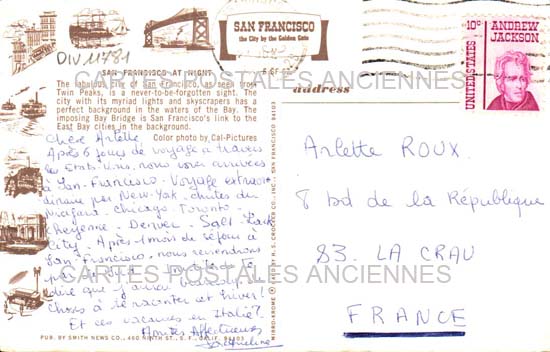 DIV 11781
SAN FRANCISCO
the City by the Golden Gate
10c ANDREW
JACKSON
UNITED STATES
SAN FRANCISCO AT NIGHT
The fabulous city of San Francisco, as seen from
Twin Peaks, is a never-to-be-forgotten sight. The
city with its myriad lights and skyscrapers has a
perfect background in the waters of the Bay. The
imposing Bay Bridge is San Francisco's link to the
East Bay cities in the background.
Color photo by Cal-Pictures
address
CARTES POSTALES ANCIENNES
Chère Arlette
Après 6 jours de voyage à travers
les Etats-Unis, nous voici arrivées
à San-Francisco. Voyage extraor-
dinaire par New-York. chutes du
Niagara. Chicago. Toronto.
Cheyenne. Denver. Salt-Lack
City. Après 1 mois de séjour à
San-Francisco, nous reviendrons
par
dire que j'aurai beaucoup
Choses à te raconter cet hiver!
Et ces vacances en Italie?
Affectueuses
Jacqueline
Arlette ROUX.
8 bd de la République
83. LA CRAU
FRANCE
CARTES POSTALES ANCIENNES
PUB. BY SMITH NEWS CO., 460 NINTH ST., S.F., CALIF. 94103
MIRRO-KROME ® CARD BY H. S. CROCKER CO., INC., SAN FRANCISCO, CA 94103